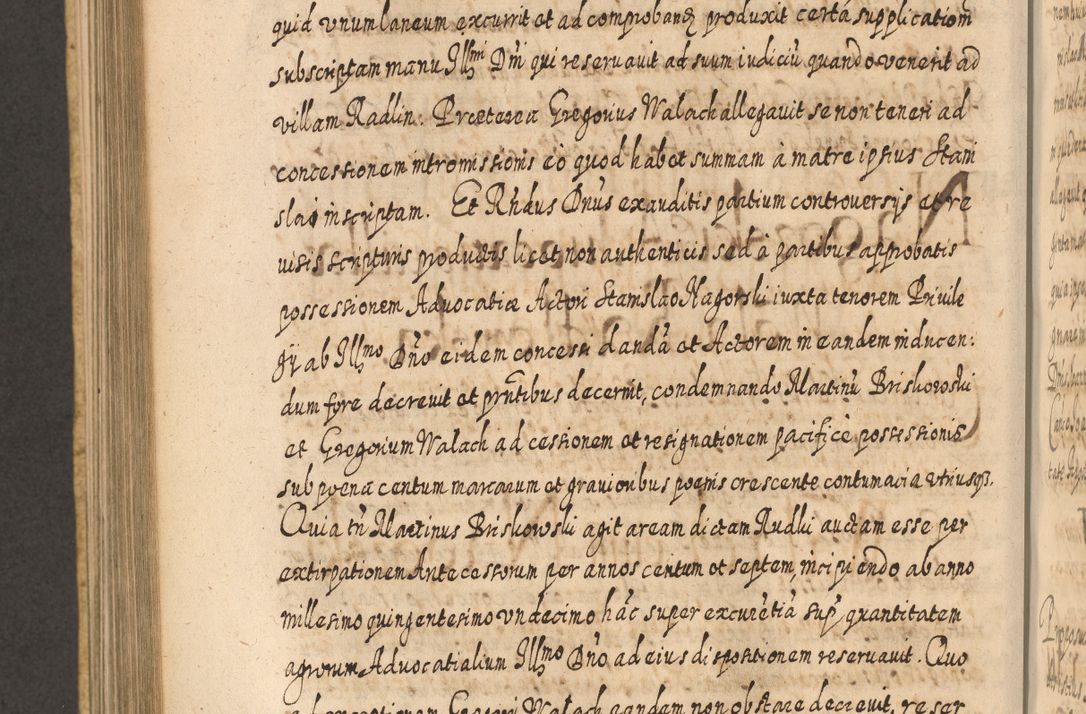 quid vnum laneum excurrit et ad comprobanꝫ produxit certā supplicatioñ
subscriptam manu Illmi Dñi qui reseruauit ad suum iudiciũ quando venerit ad
villam Radlin. Præterea Gregorius Walach allegauit se non teneri ad
concessionem intromissionis eò quod habet summam à matre ipsius Stani
slai inscriptam. Et Rñdus Dñus exauditis partium controuersijs et re
uisis scripturis productis licet non authenticis sed à partibus approbatis
possessionem Aduocatiæ Actori Stanislao Nagorski iuxta tenorem Priuile
gÿ ab Illmo Dño eidem concessi dandā et Actorem in eandem inducen:
dum fore decreuit et prñtibus decernit, condemnando Martinũ Briskowski
et Gregorium Walach ad cessionem et resignationem pacificè possessionis
sub poena centum marcarum et grauioribus poenis crescente contumacia vtriusqꝫ.
Quia tñ Martinus Briskowski agit aream dictam Rudki auctam esse per
extirpationem Antecessorum per annos centum et septem, incipiendo ab anno
millesimo quingentesimo vndecimo hāc super excrñtiā sup quantitatem
agrorum Aduocatialium Illmo Dño ad eius dispositionem reseruauit. Quo
ad exceptionem Gregorii Walach eandem non obstare decreuit, reser